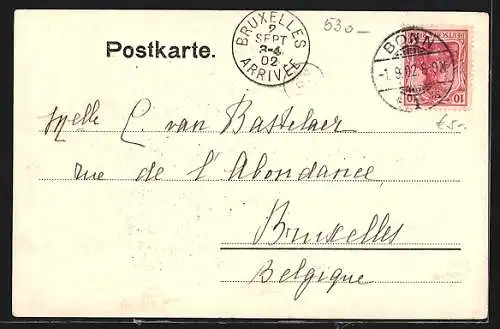 Postkarte.
BRUXELLES
2
SEPT
3-4
02
ARRIVÉE
530-
BONN
-1.9.02.8-9V.
10 10
€5.-
Melle C. van Bastelaer
rue de l'Abondance
Bruxelles
Belgique